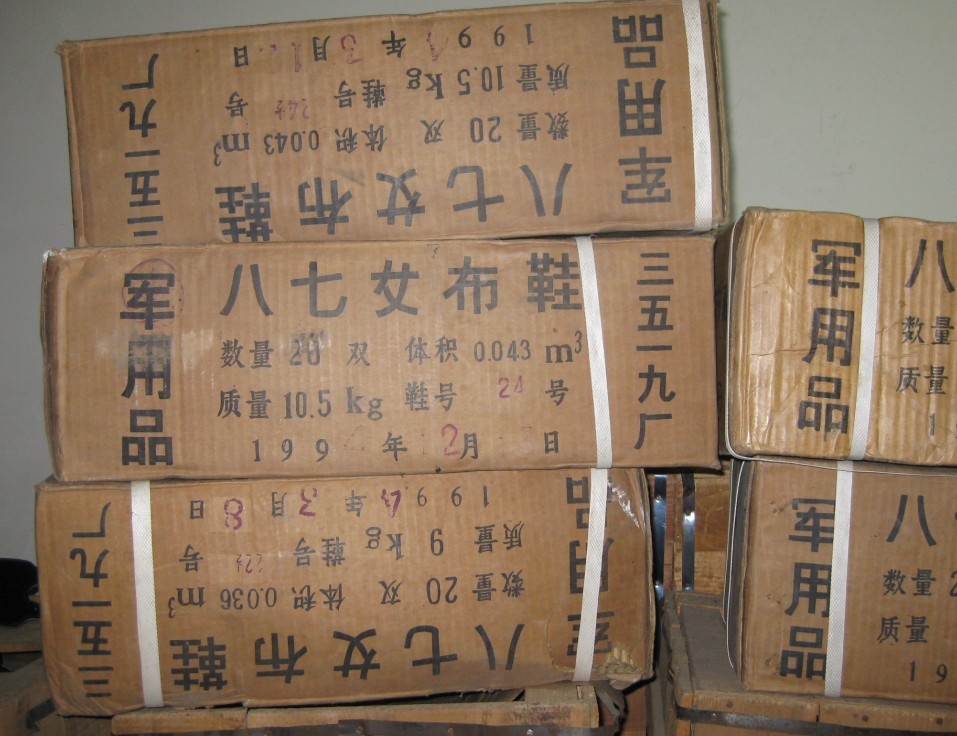 军用品
八七女布鞋
数量 20 双 体积 0.043 m³
质量 10.5 kg 鞋号 号
199 年 3月1 日
三五一九厂
军用品
八七女布鞋
数量 20 双 体积 0.043 m³
质量 10.5 kg 鞋号 24 号
199 年 2月 日
三五一九厂
军用品
八七女布鞋
数量 20 双 体积 0.036 m³
质量 9 kg 鞋号 号
1994 年 3月8 日
三五一九厂
军用品
八
数量
质量
1
军用品
八
数量 2
质量
19